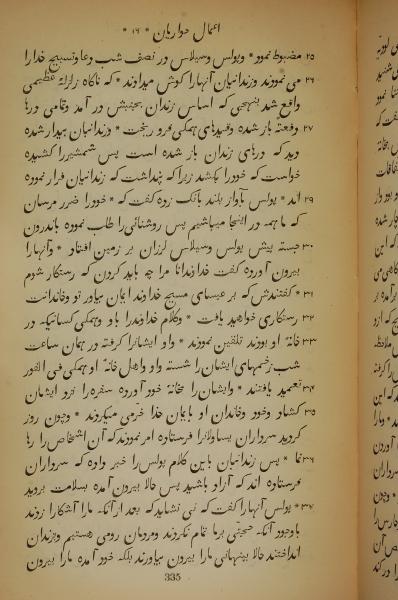 اعمال حواریان * ۱۶ *
۲۵ مضبوط نمود * وپولس وسیلاس در نصف شب دعا وتسبیح خدارا
۲۶ می نمودند وزندانیان آنهارا کوش میدادند * که ناکاه زلزلهٔ عظیمی
واقع شد بنهجی که اساس زندان بجنبش در آمد وتمامی درها
۲۷ دفعتهً باز شده وقیدهای همکی فرو ریخت * وزندانبان بیدار شده
دید که درهای زندان باز شده است پس شمشیررا کشیده
خواست که خودرا بکشد زیرا که پنداشت که زندانیان فرار نموده
۲۹ اند * پولس بآواز بلند بانک زده کفت که * خودرا ضرر مرسان
که ما همه در اینجا میباشیم پس روشنائی را طلب نموده باندرون
۳۰ جسته پیش پولس وسیلاس لرزان بر زمین افتاد * وآنهارا
بیرون آورده کفت خداوندانا مرا چه باید کردن که رستکار شوم
۳۱ * کفتندش که بر عیسای مسیح خداوند ایمان بیاور تو وخاندانت
۳۲ رستکاری خواهید یافت * وکلام خداوندرا باو وهمکی کسانیکه در
۳۳ خانهٔ او بودند تلقین نمودند * واو ایشانرا کرفته در همان ساعت
شب زخمهای ایشان را شسته واو واهل خانهٔ او همکی فی الفور
۳۴ تعمید یافتند * وایشان را بخانهٔ خود آورده سفره را نزد ایشان
۳۵ کشاد وخود وخاندان او بایمان خدا خرمی میکردند * وچون روز
کردید سرداران یساولانرا فرستاده امر نمودند که آن اشخاص را رها
۳۶ نما * پس زندانبان باین کلام پولس را خبر داده که سرداران
فرستاده اند که آزاد باشید پس حالا بیرون آمده بسلامت بروید
۳۷ * پولس آنهارا کفت که نی نشاید که بعد از آنکه مارا آشکارا زدند
باوجود آنکه حجتی برما تمام نکردند ومردمان رومی هستیم وبزندان
انداختند حالا به پنهانی مارا بیرون میآورند بلکه خود آمده مارا بیرون
335